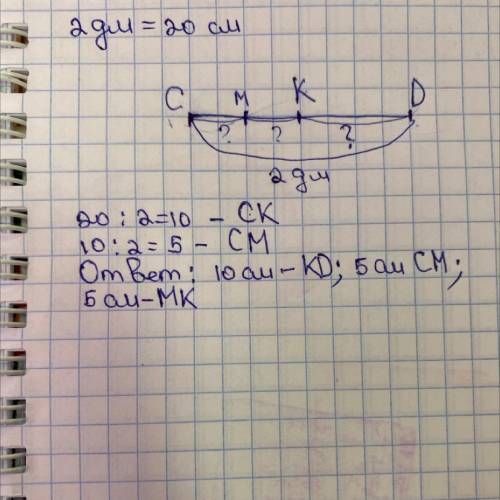 2 дм = 20 см
C M K D
? ? ?
2 дм
20 : 2 = 10 - CK
10 : 2 = 5 - CM
Ответ: 10 см - KD; 5 см CM;
5 см - MK